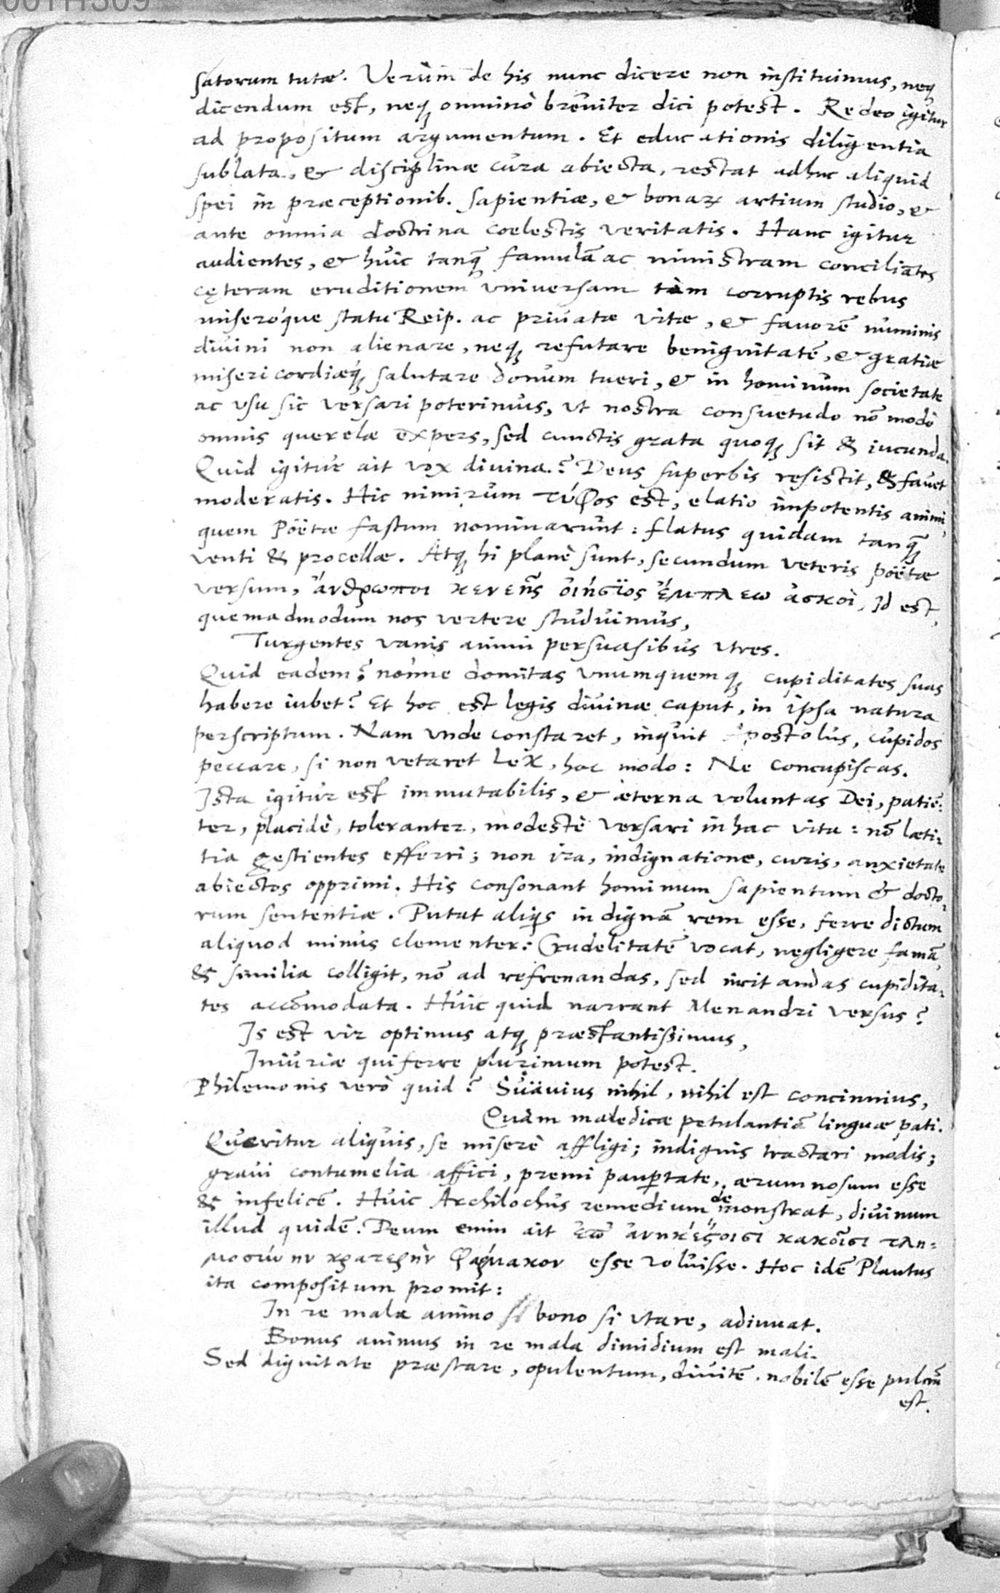 satorum tutæ. Verùm de his nunc dicere non instituimus, neq́
dicendum est, neq́ omninò breviter dici potest. Redeo igitur
ad propositum argumentum. Et educationis diligentia
sublata, & disciplinæ cura abiecta, restat adhuc aliquid
spei in præceptionib. sapientiæ, & bonaꝝ artium studio, &
ante omnia doctrina coelestis veritatis. Hanc igitur
audientes, & huic tanq̄ famulā ac ministram conciliātes
cęteram eruditionem vniversam tàm corruptis rebus
miseróque statu Reip. ac privatæ vitæ, & favorē numinis
divini non alienare, neq́ refutare benignitatē, & gratiæ
misericordiæq́ salutare donum tueri, & in hominum societate
ac vsu sic versari poterimus, vt nostra consuetudo nō modò
omnis querelæ expers, sed cunctis grata quoq́ sit & iucunda.
Quid igitur ait vox divina? Deus superbis resistit, & favet
moderatis. Hic nimirum τύφος est, elatio impotentis animi,
quem Poëtæ fastum nominarunt: flatus quidam tanq̄
venti & procellæ. Atq́ hi planè sunt, secundum veteris poëtæ
versum, ἄνθρωποι κενεῆς οἰήσιος ἔμπλεω ἀσκοὶ, Id est,
quemadmodum nos vertere studuimus,
Turgentes vanis animi persuasibus vtres.
Quid eadem? nónne domitas vnumquemq́ cupiditates suas
habere iubet? Et hoc est legis divinæ caput, in ipsa natura
perscriptum. Nam vnde constaret, inquit Apostolus, cupidos
peccare, si non vetaret Lex, hoc modo: Ne concupiscas.
Ista igitur est immutabilis, & æterna voluntas Dei, patiē-
ter, placidè, toleranter, modestè versari in hac vita: nō læti-
tia gestientes efferri; non ira, indignatione, curis, anxietate
abiectos opprimi. His consonant hominum sapientum & docto-
rum sententiæ. Putat aliq̇s indignā rem esse, ferre dictum
aliquod minus clementer: Crudelitatē vocat, negligere famā
& similia colligit, nō ad refrenandas, sed incitandas cupidita-
tes accōmodata. Huic quid narrant Menandri versus?
Is est vir optimus atq́ præstantissimus,
Iniuriæ qui ferre plurimum potest.
Philemonis verò quid? Suävius nihil, nihil est concinnius,
Quàm maledicæ petulantiā linguæ pati.
Queritur aliquis, se miserè affligi; indignis tractari modis;
gravi contumelia affici, premi paupertate, ærumnosum esse
& infelicē. Huic Archilochus remedium demonstrat, divinum
illud quidē. Deum enim ait ἐπ' ἀνηκέστοισι κακοῖσι τλη-
μοσύνην κρατερὴν φάρμακον esse voluisse. Hoc idē Plautus
ita compositum promit:
In re mala animo si bono si vtare, adiuvat.
Bonus animus in re mala dimidium est mali.
Sed dignitate præstare, opulentum, divitē, nobilē esse pulcrū
est.